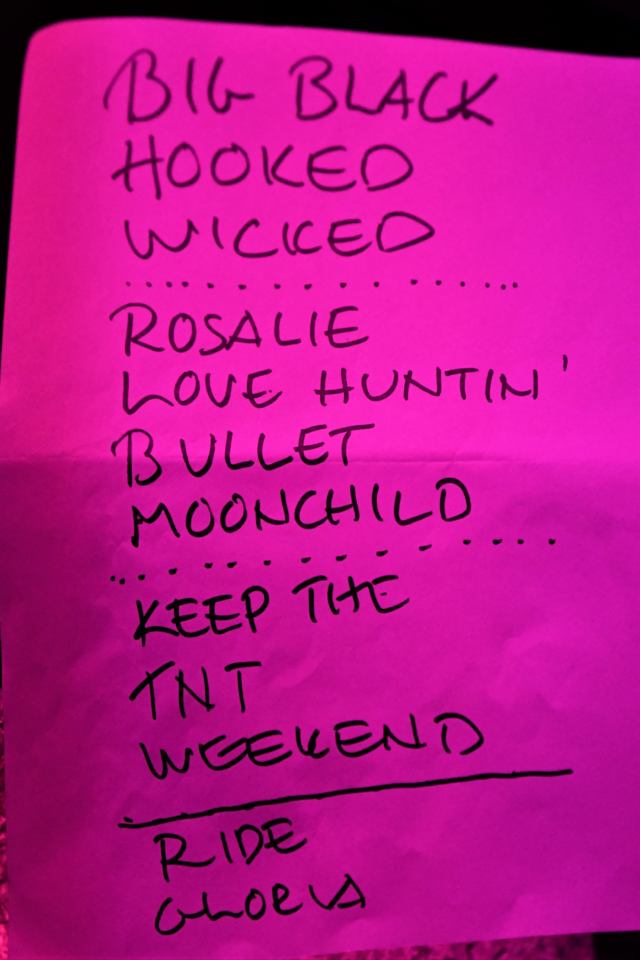 BIG BLACK
HOOKED
WICKED
ROSALIE
LOVE HUNTIN'
BULLET
MOONCHILD
KEEP THE
TNT
WEEKEND
RIDE
GLORIA